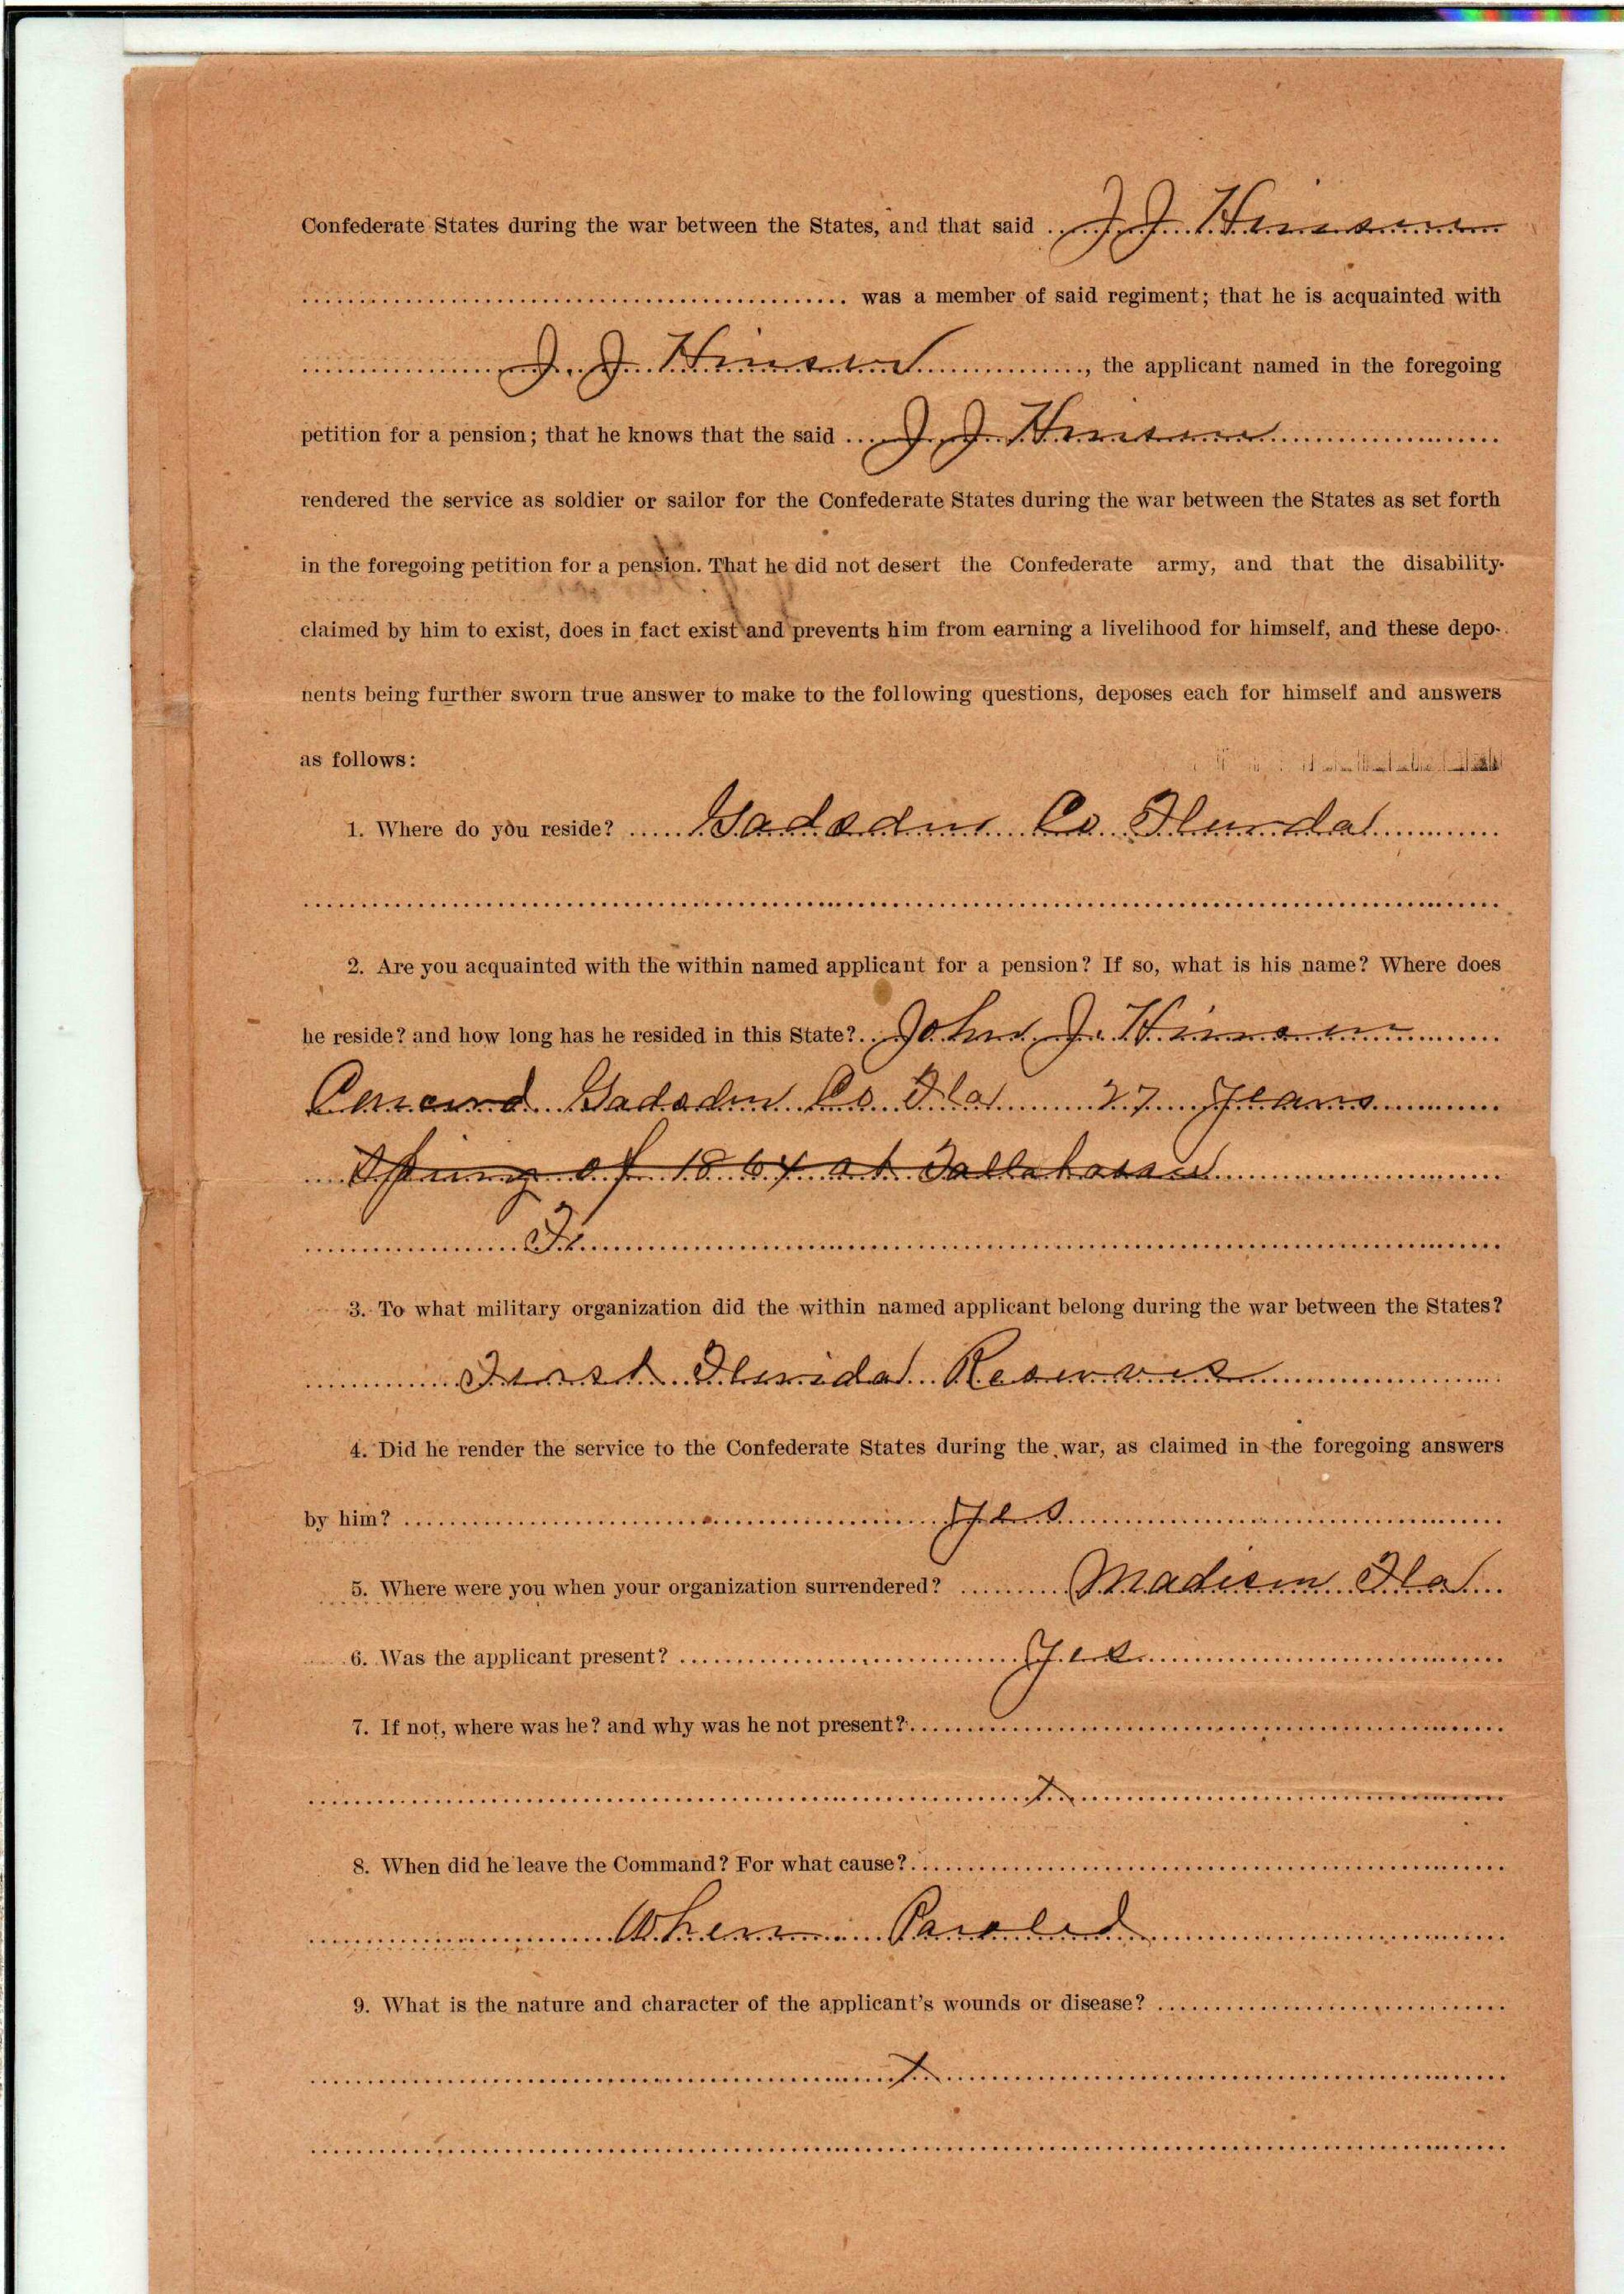 Confederate States during the war between the States, and that said J J Hinson
was a member of said regiment; that he is acquainted with
J. J. Hinson, the applicant named in the foregoing
petition for a pension; that he knows that the said J J Hinson
rendered the service as soldier or sailor for the Confederate States during the war between the States as set forth
in the foregoing petition for a pension. That he did not desert the Confederate army, and that the disability
claimed by him to exist, does in fact exist and prevents him from earning a livelihood for himself, and these depo-
nents being further sworn true answer to make to the following questions, deposes each for himself and answers
as follows:
1. Where do you reside? Gadsden Co. Florida
2. Are you acquainted with the within named applicant for a pension? If so, what is his name? Where does
he reside? and how long has he resided in this State? John J. Hinson
Concord Gadsden Co Fla 27 Years
Spring of 1864 at Tallahassee
Fl
3. To what military organization did the within named applicant belong during the war between the States?
First Florida Reserves
4. Did he render the service to the Confederate States during the war, as claimed in the foregoing answers
by him? Yes
5. Where were you when your organization surrendered? Madison Fla
6. Was the applicant present? Yes
7. If not, where was he? and why was he not present?
x
8. When did he leave the Command? For what cause?
When Paroled
9. What is the nature and character of the applicant's wounds or disease?
x